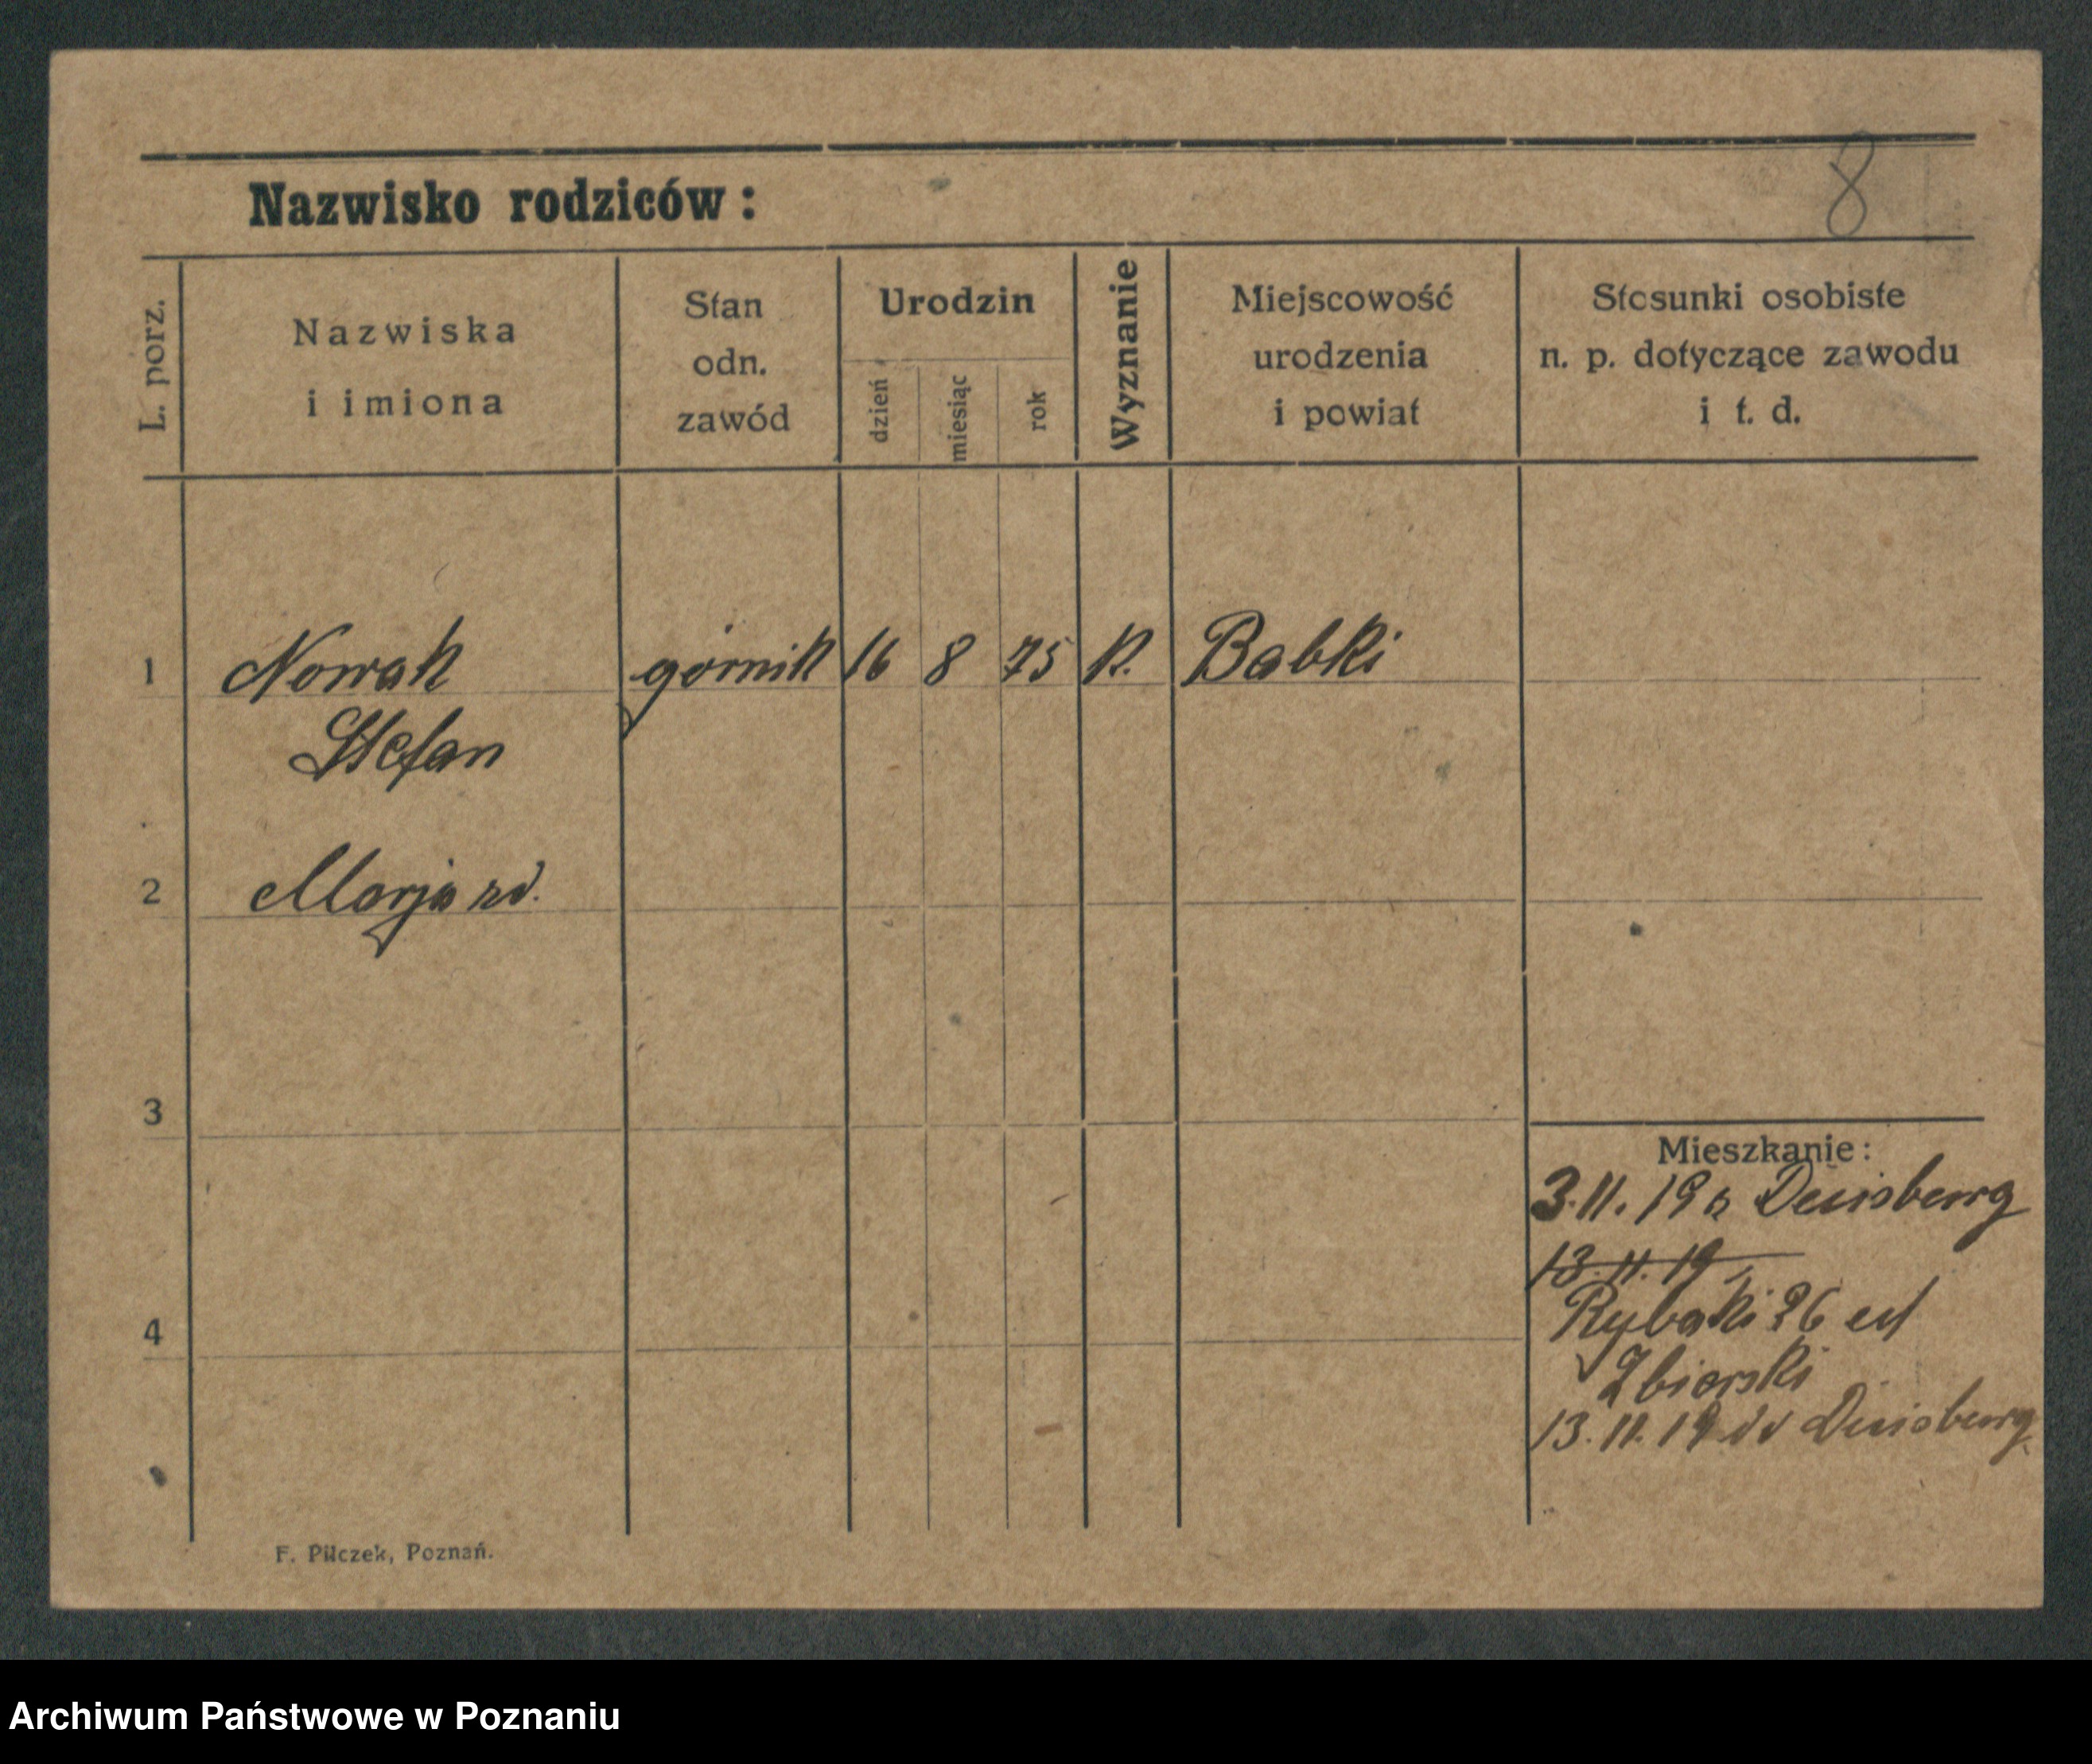 8
Nazwisko rodziców:
L. porz.
Nazwiska
i imiona
Stan
odn.
zawód
Urodzin
dzień
miesiąc
rok
Wyznanie
Miejscowość
urodzenia
i powiat
Stosunki osobiste
n. p. dotyczące zawodu
i t. d.
1 Nowak górnik 16 8 75 k. Babki
Stefan
2 Marja
3
Mieszkanie:
3.11.19 z Duisburg
13.11.19
Rybaki 26
4
Zbiorski
13.11.19 Duisburg
F. Pilczek, Poznań.
Archiwum Państwowe w Poznaniu